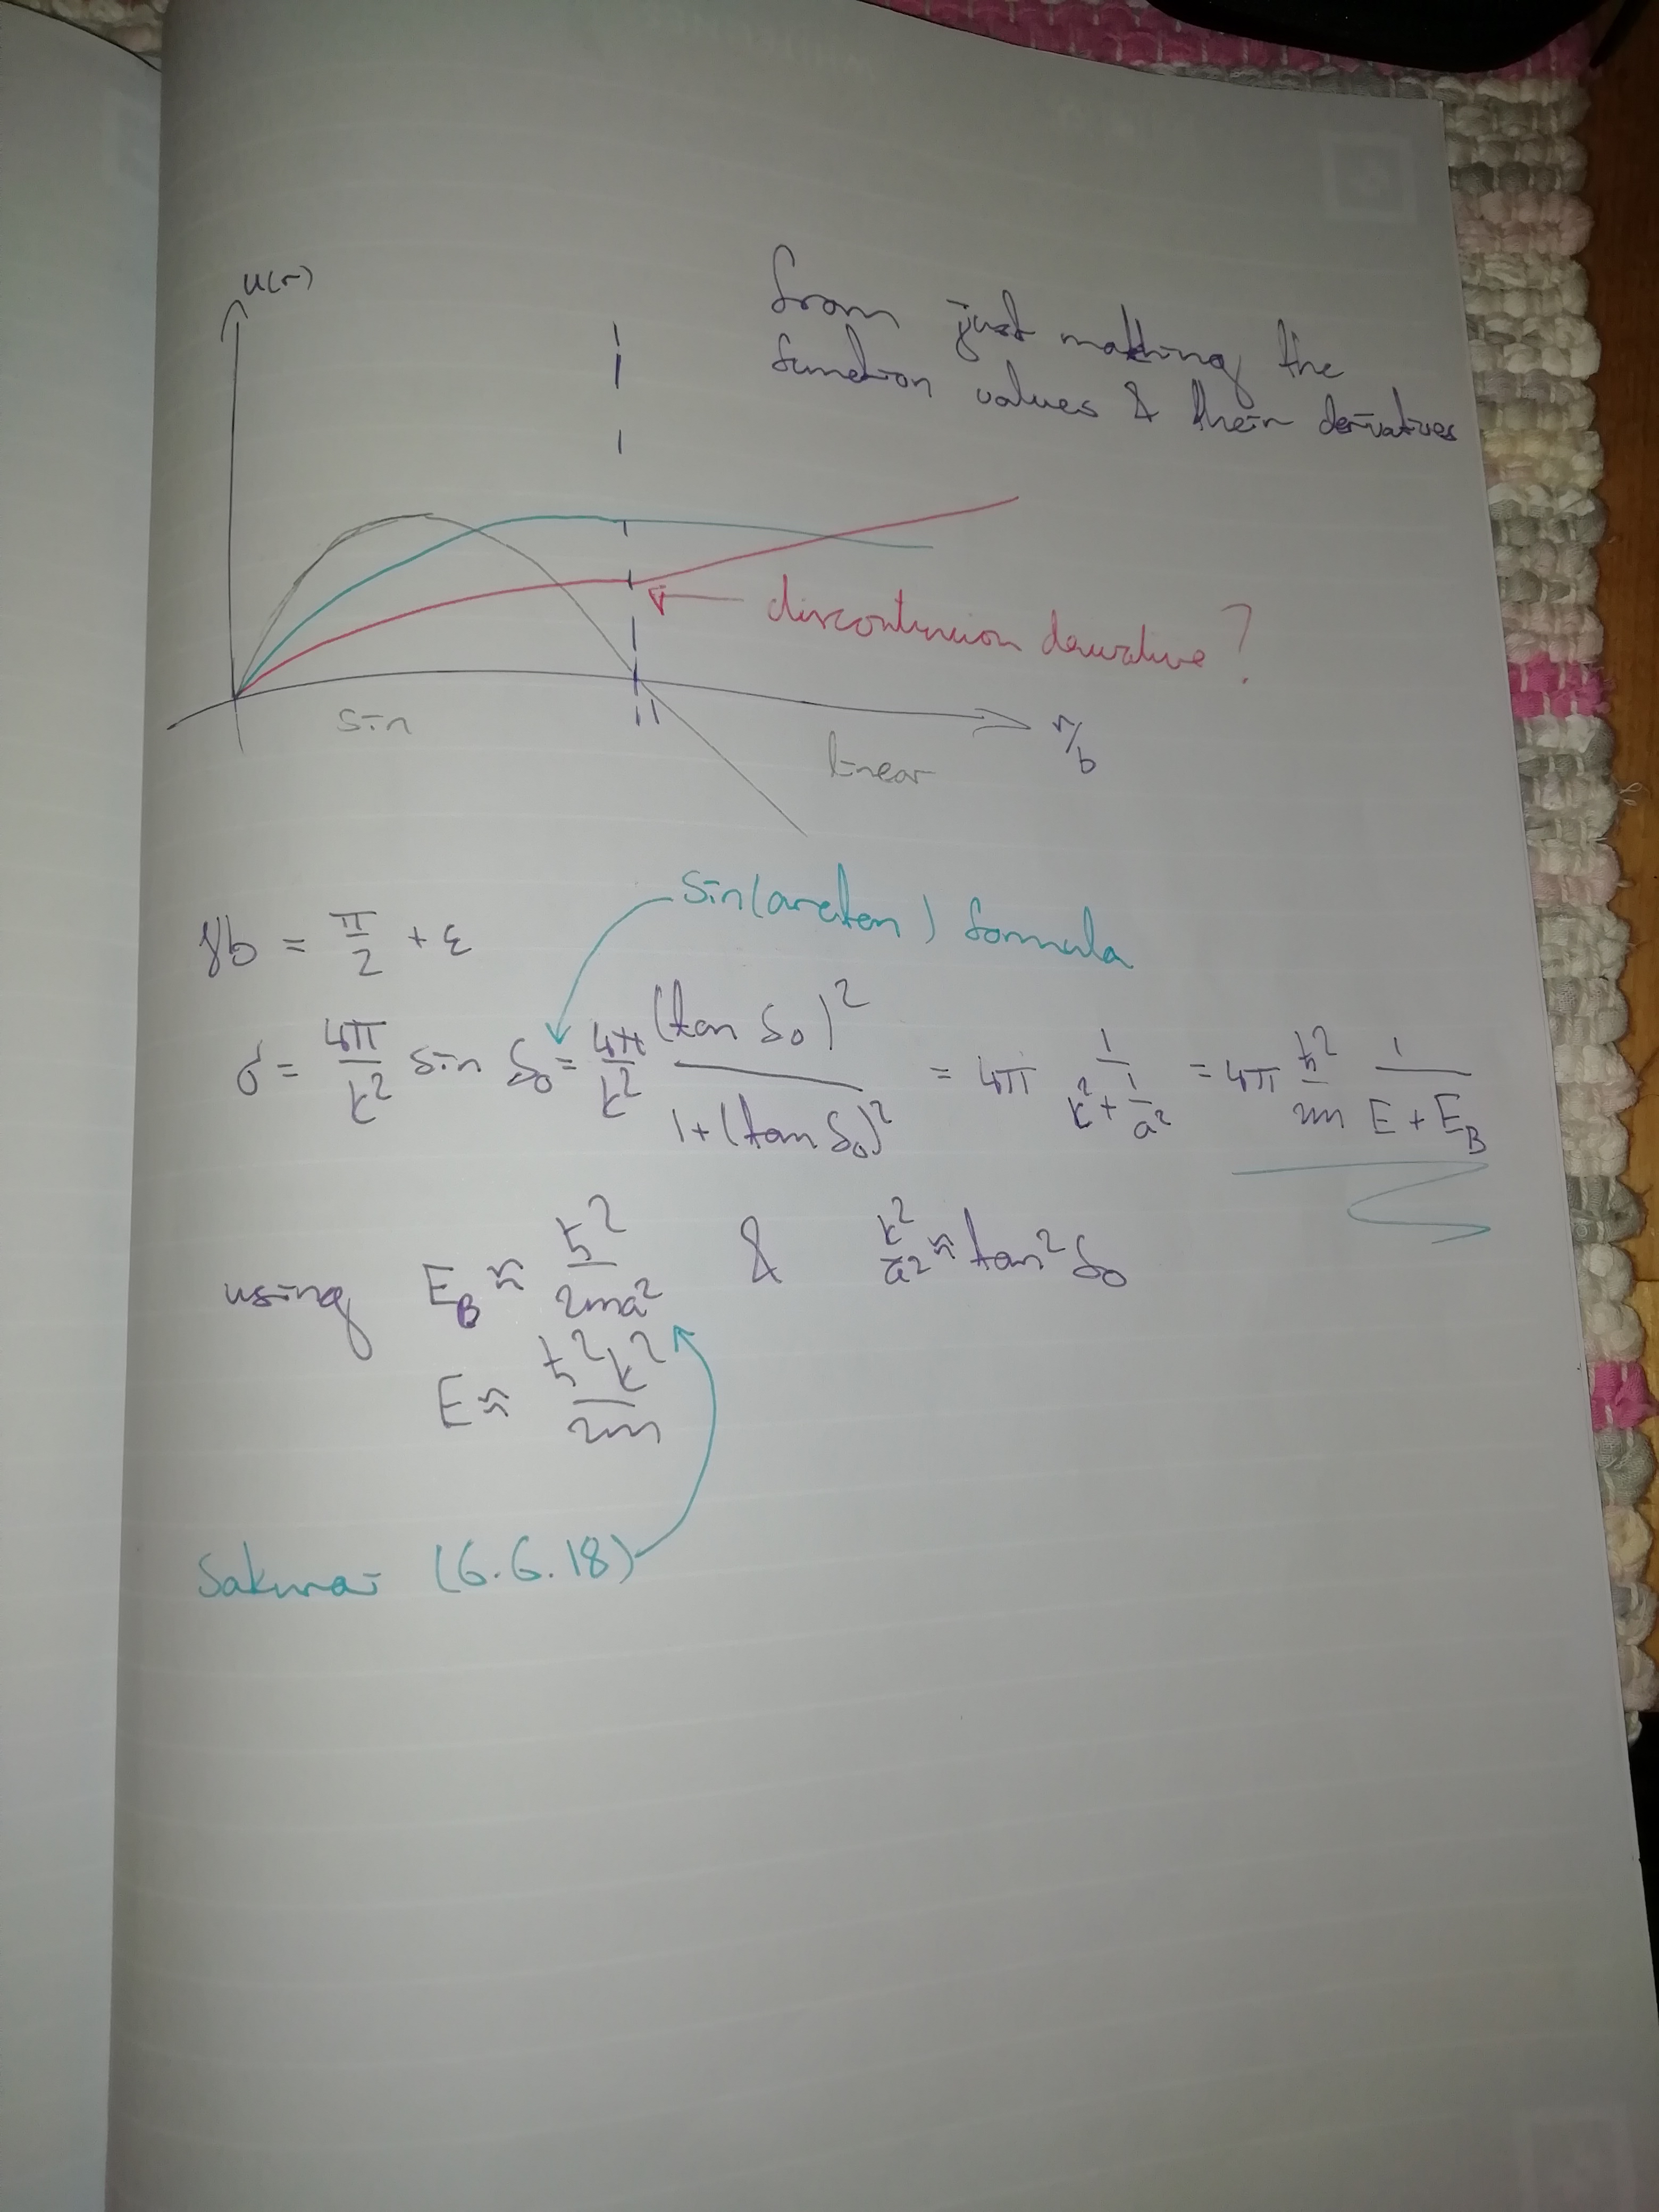 u(r)
from just matching the
function values & their derivatives
discontinuion derivative?
sin
1
r/b
linear
sin(arctan) formula
γb = π/2 + ε
σ = 4π/k² sin δ₀ = 4π/k² (tan δ₀)²/(1+(tan δ₀)²) = 4π 1/(k²+1/a²) = 4π ħ²/2m 1/(E + E_B)
using E_B ≈ ħ²/2ma² & k²/a² ≈ tan² δ₀
E ≈ ħ²k²/2m
Sakurai (6.6.18)